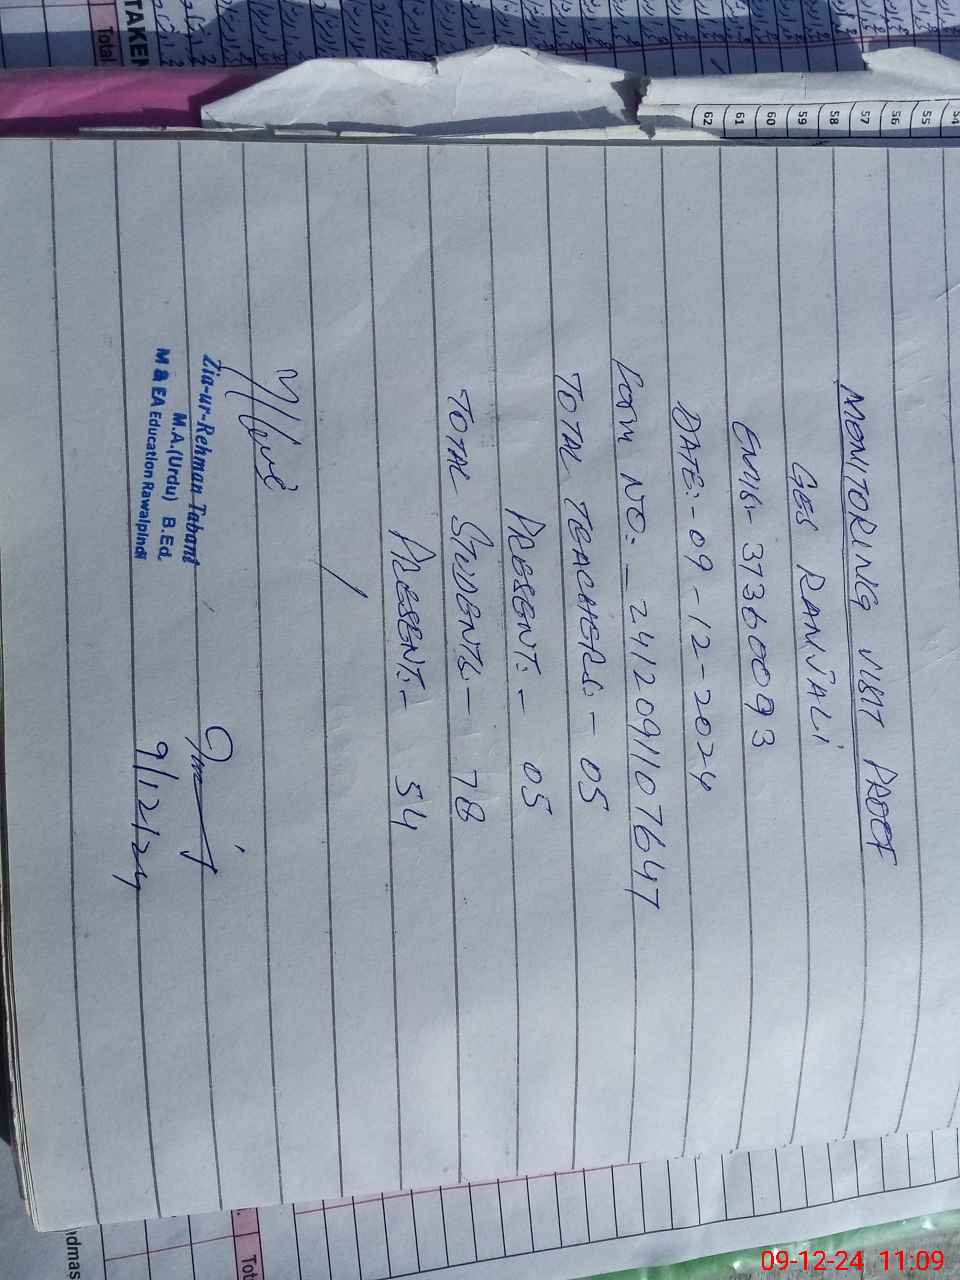 MONITORING VISIT PROOF
GES RANJALI
EMIS:- 37360093
DATE:- 09-12-2024
Form NO:- 2412091107647
TOTAL TEACHERS:- 05
PRESENT:- 05
TOTAL STUDENTS:- 78
PRESENT:- 54
Zia-ur-Rehman Tabani
M.A.(Urdu) B.Ed.
M & EA Education Rawalpindi
9/12/24
TAKEN
Total
62 61 60 59 58 57 56 55 54
09-12-24 11:09